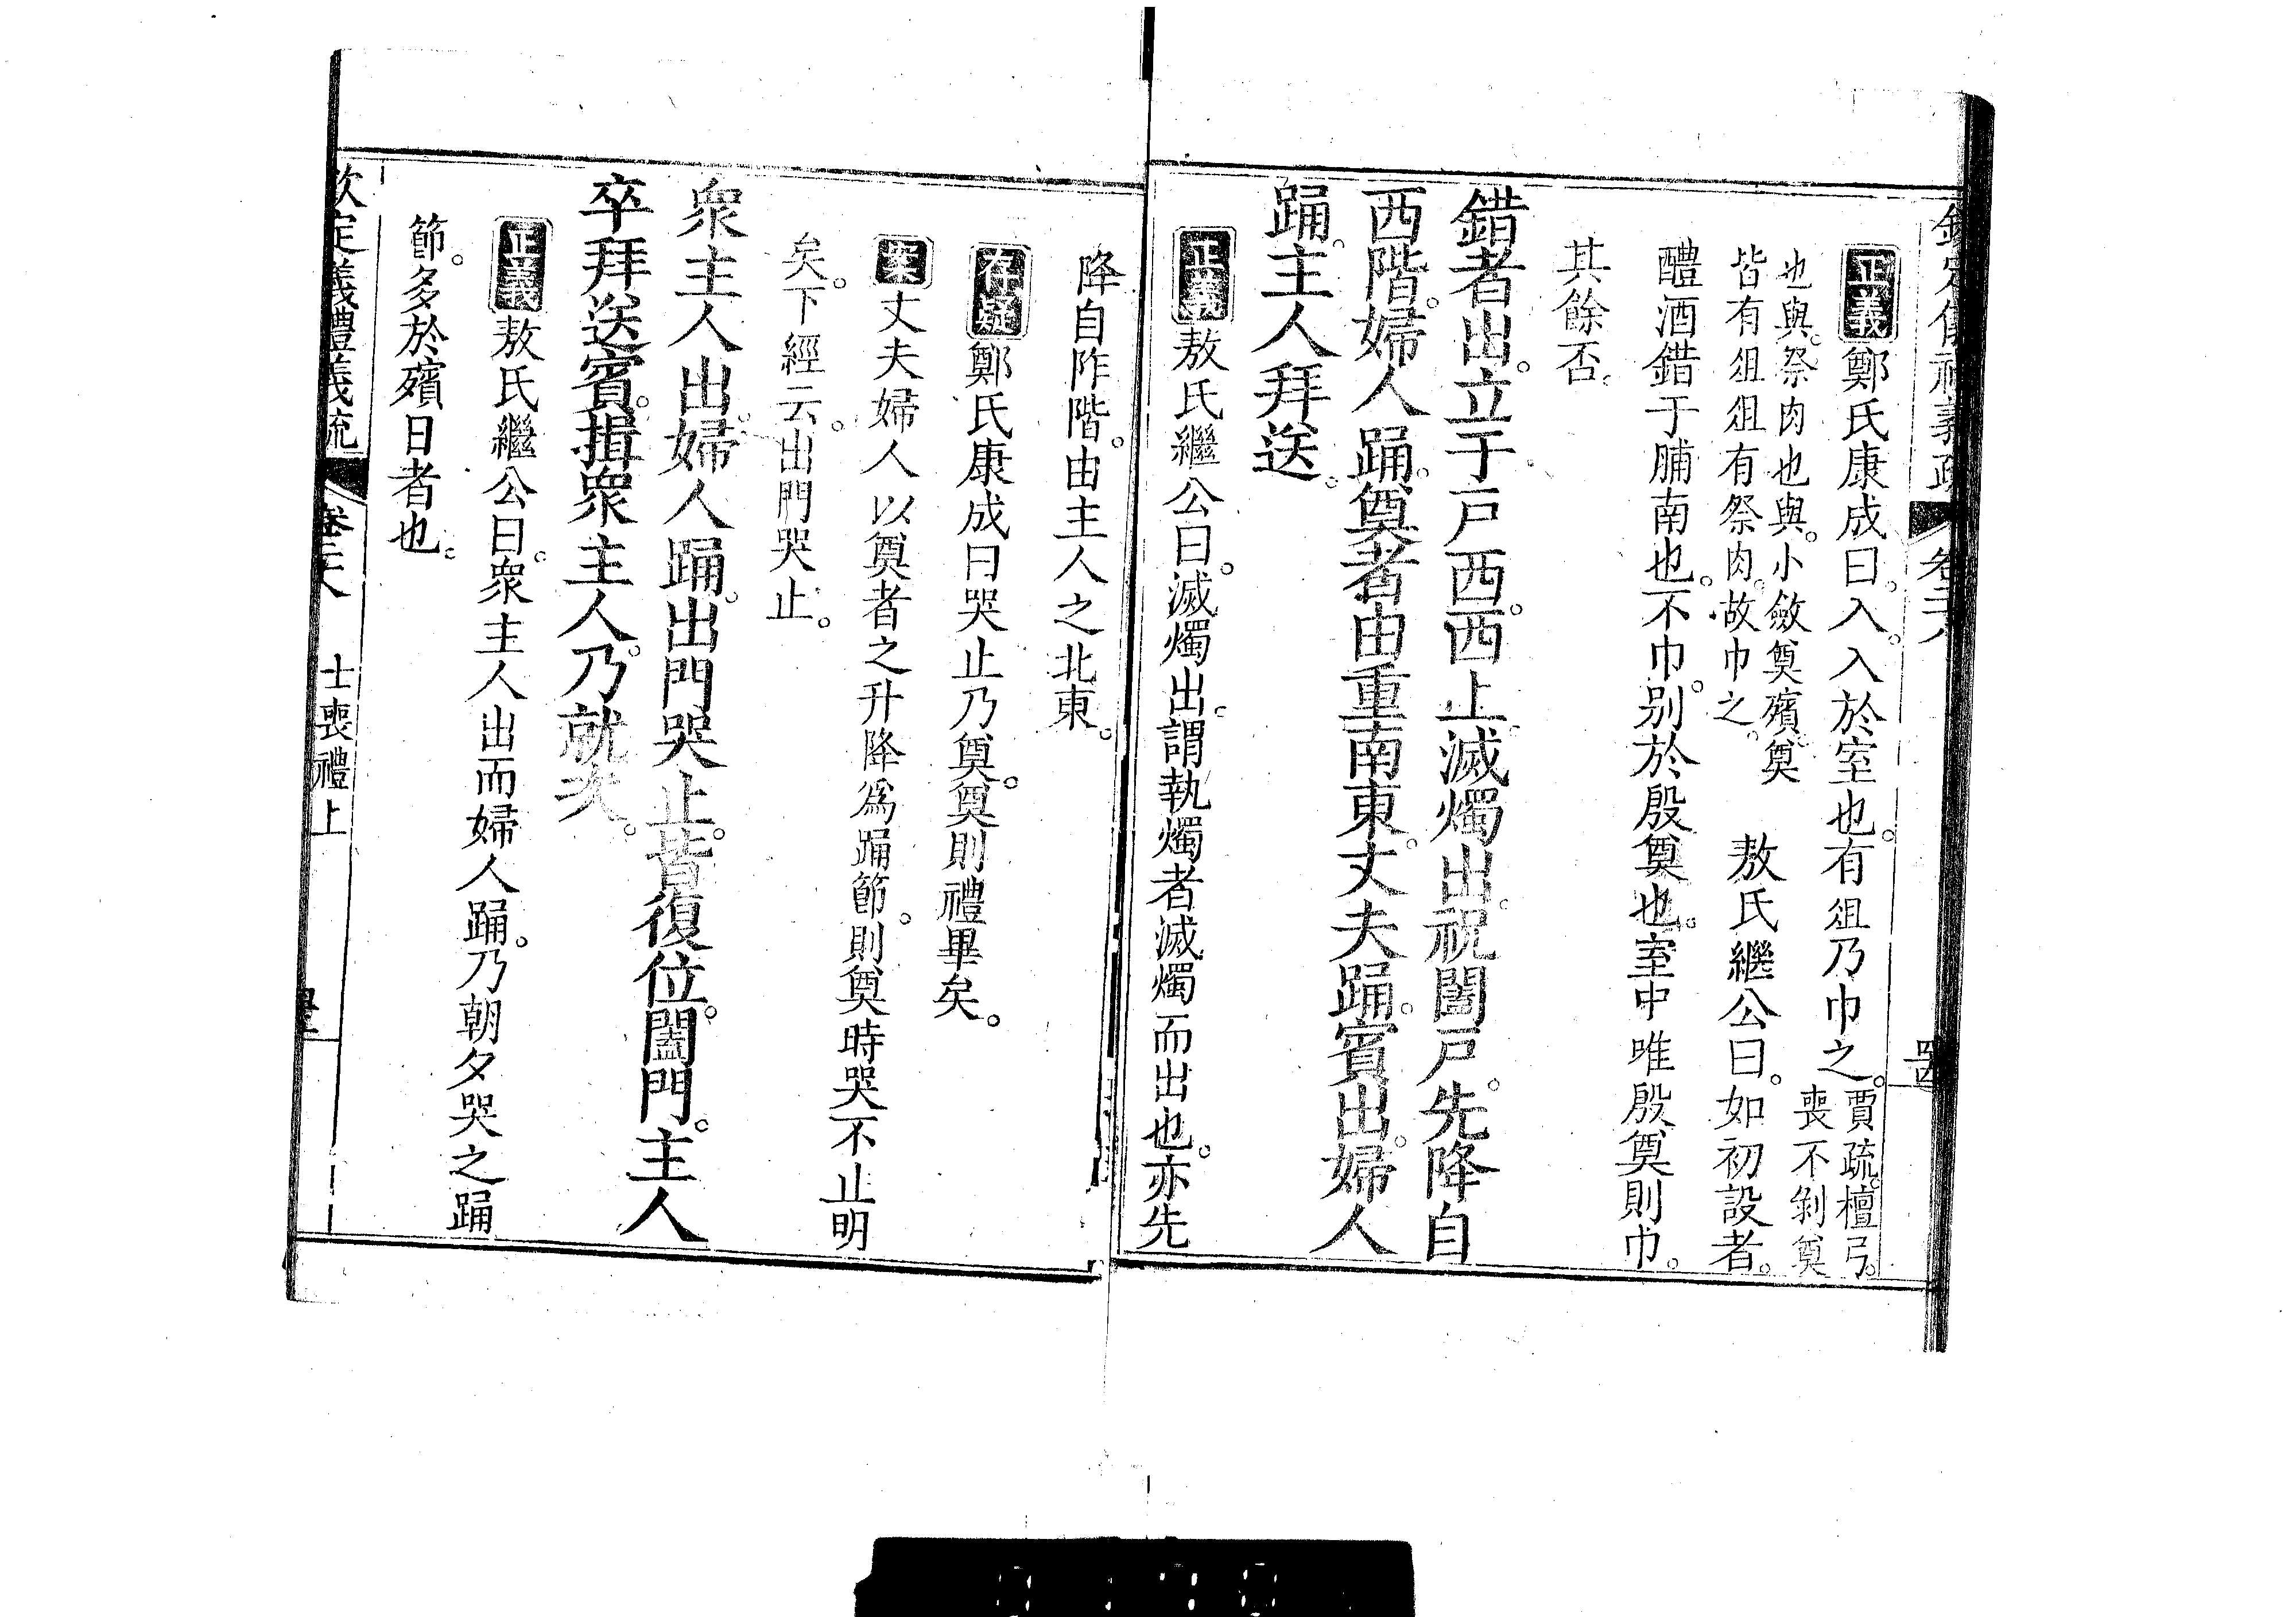 欽定儀禮義疏 卷二八 四四
正義鄭氏康成曰。入。入於室也。有俎乃巾之。賈疏。檀弓。喪不剝奠
也與。祭肉也與。小斂奠殯奠
皆有俎。俎有祭肉。故巾之。 敖氏繼公曰。如初設者。
醴酒錯于脯南也。不巾。別於殷奠也。室中唯殷奠則巾。
其餘否。
錯者出。立于戸西。西上。滅燭出。祝闔戸。先降自
西階。婦人踊。奠者由重南東。丈夫踊。賓出。婦人
踊。主人拜送。
正義敖氏繼公曰。滅燭出。謂執燭者滅燭而出也。亦先
降自阼階。由主人之北東。
存疑鄭氏康成曰哭止乃奠。奠則禮畢矣。
案丈夫婦人以奠者之升降爲踊節。則奠時哭不止明
矣。下經云。出門哭止。
衆主人出。婦人踊。出門哭止。皆復位。闔門。主人
卒拜送賓。揖衆主人。乃就次。
正義敖氏繼公曰。衆主人出而婦人踊。乃朝夕哭之踊
節。多於殯日者也。
欽定義禮義疏 卷二八 士喪禮上